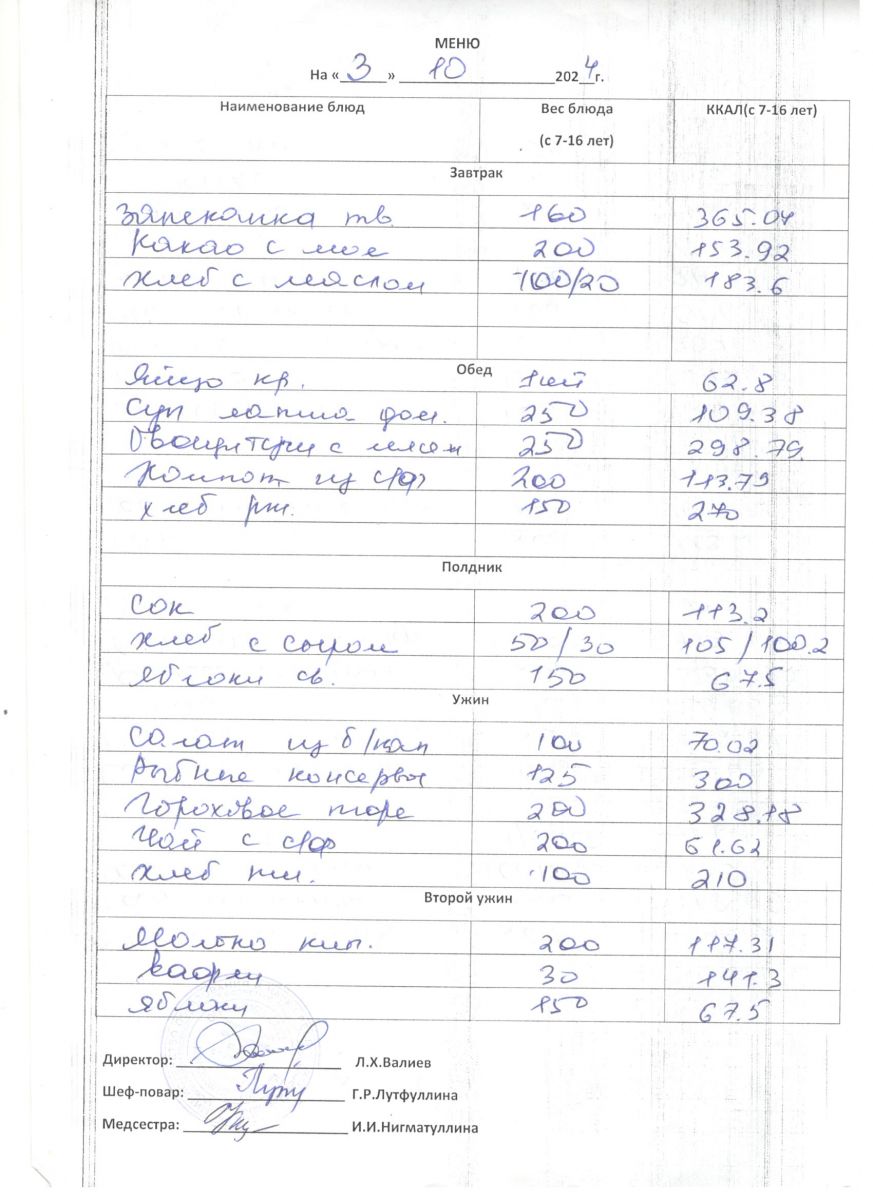 МЕНЮ
На «3» 10 2024г.
Наименование блюд Вес блюда (с 7-16 лет) ККАЛ(с 7-16 лет)
Завтрак
Запеканка тв 160 365.04
Какао с мол 200 153.92
Хлеб с маслом 100/20 183.6
Обед
Яйцо кр. 1шт 62.8
Суп лапша дом. 250 109.38
Овощи туш с мясом 250 298.79
Компот из с/ф 200 113.79
хлеб рж. 150 270
Полдник
Сок 200 113.2
хлеб с сыром 50/30 105/100.2
яблоки св. 150 67.5
Ужин
Салат из б/кап 100 70.02
Рыбные консервы 125 300
Гороховое пюре 200 328.18
Чай с с/ф 200 61.62
хлеб пш. 100 210
Второй ужин
Молоко кип. 200 117.31
вафли 30 141.3
яблоки 150 67.5
Директор: Л.Х.Валиев
Шеф-повар: Г.Р.Лутфуллина
Медсестра: И.И.Нигматуллина